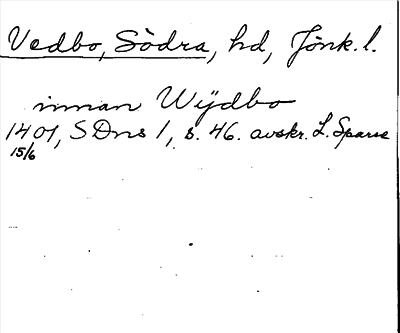 Vedbo, Södra, hd, Jönk. l.
innan Wÿdbo
1401, SDns 1, s. 46. avskr. L. Sparre
15/6